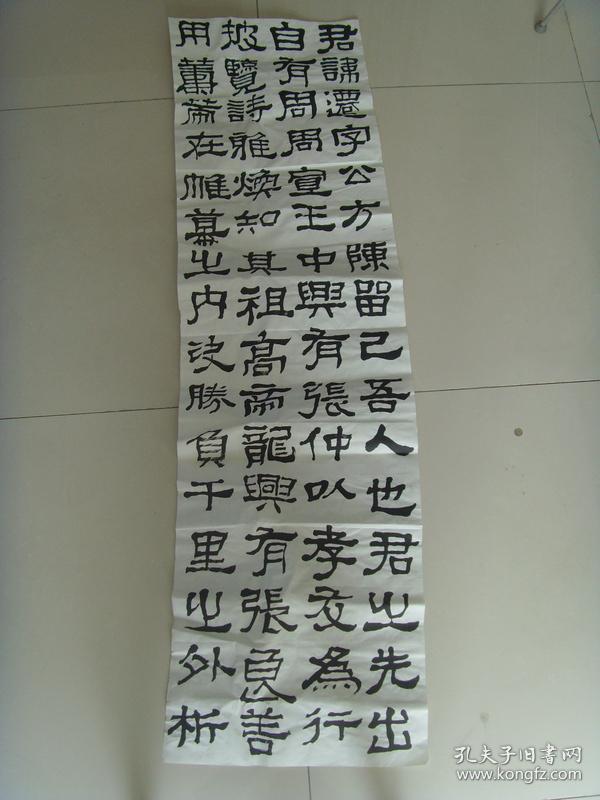 君諱遷字公方陳留己吾人也君之先出
自有周周宣王中興有張仲以孝友為行
披覽詩雅煥知其祖高帝龍興有張良善
用籌策在帷幕之内决勝負千里之外析
孔夫子旧書网
www.kongfz.com